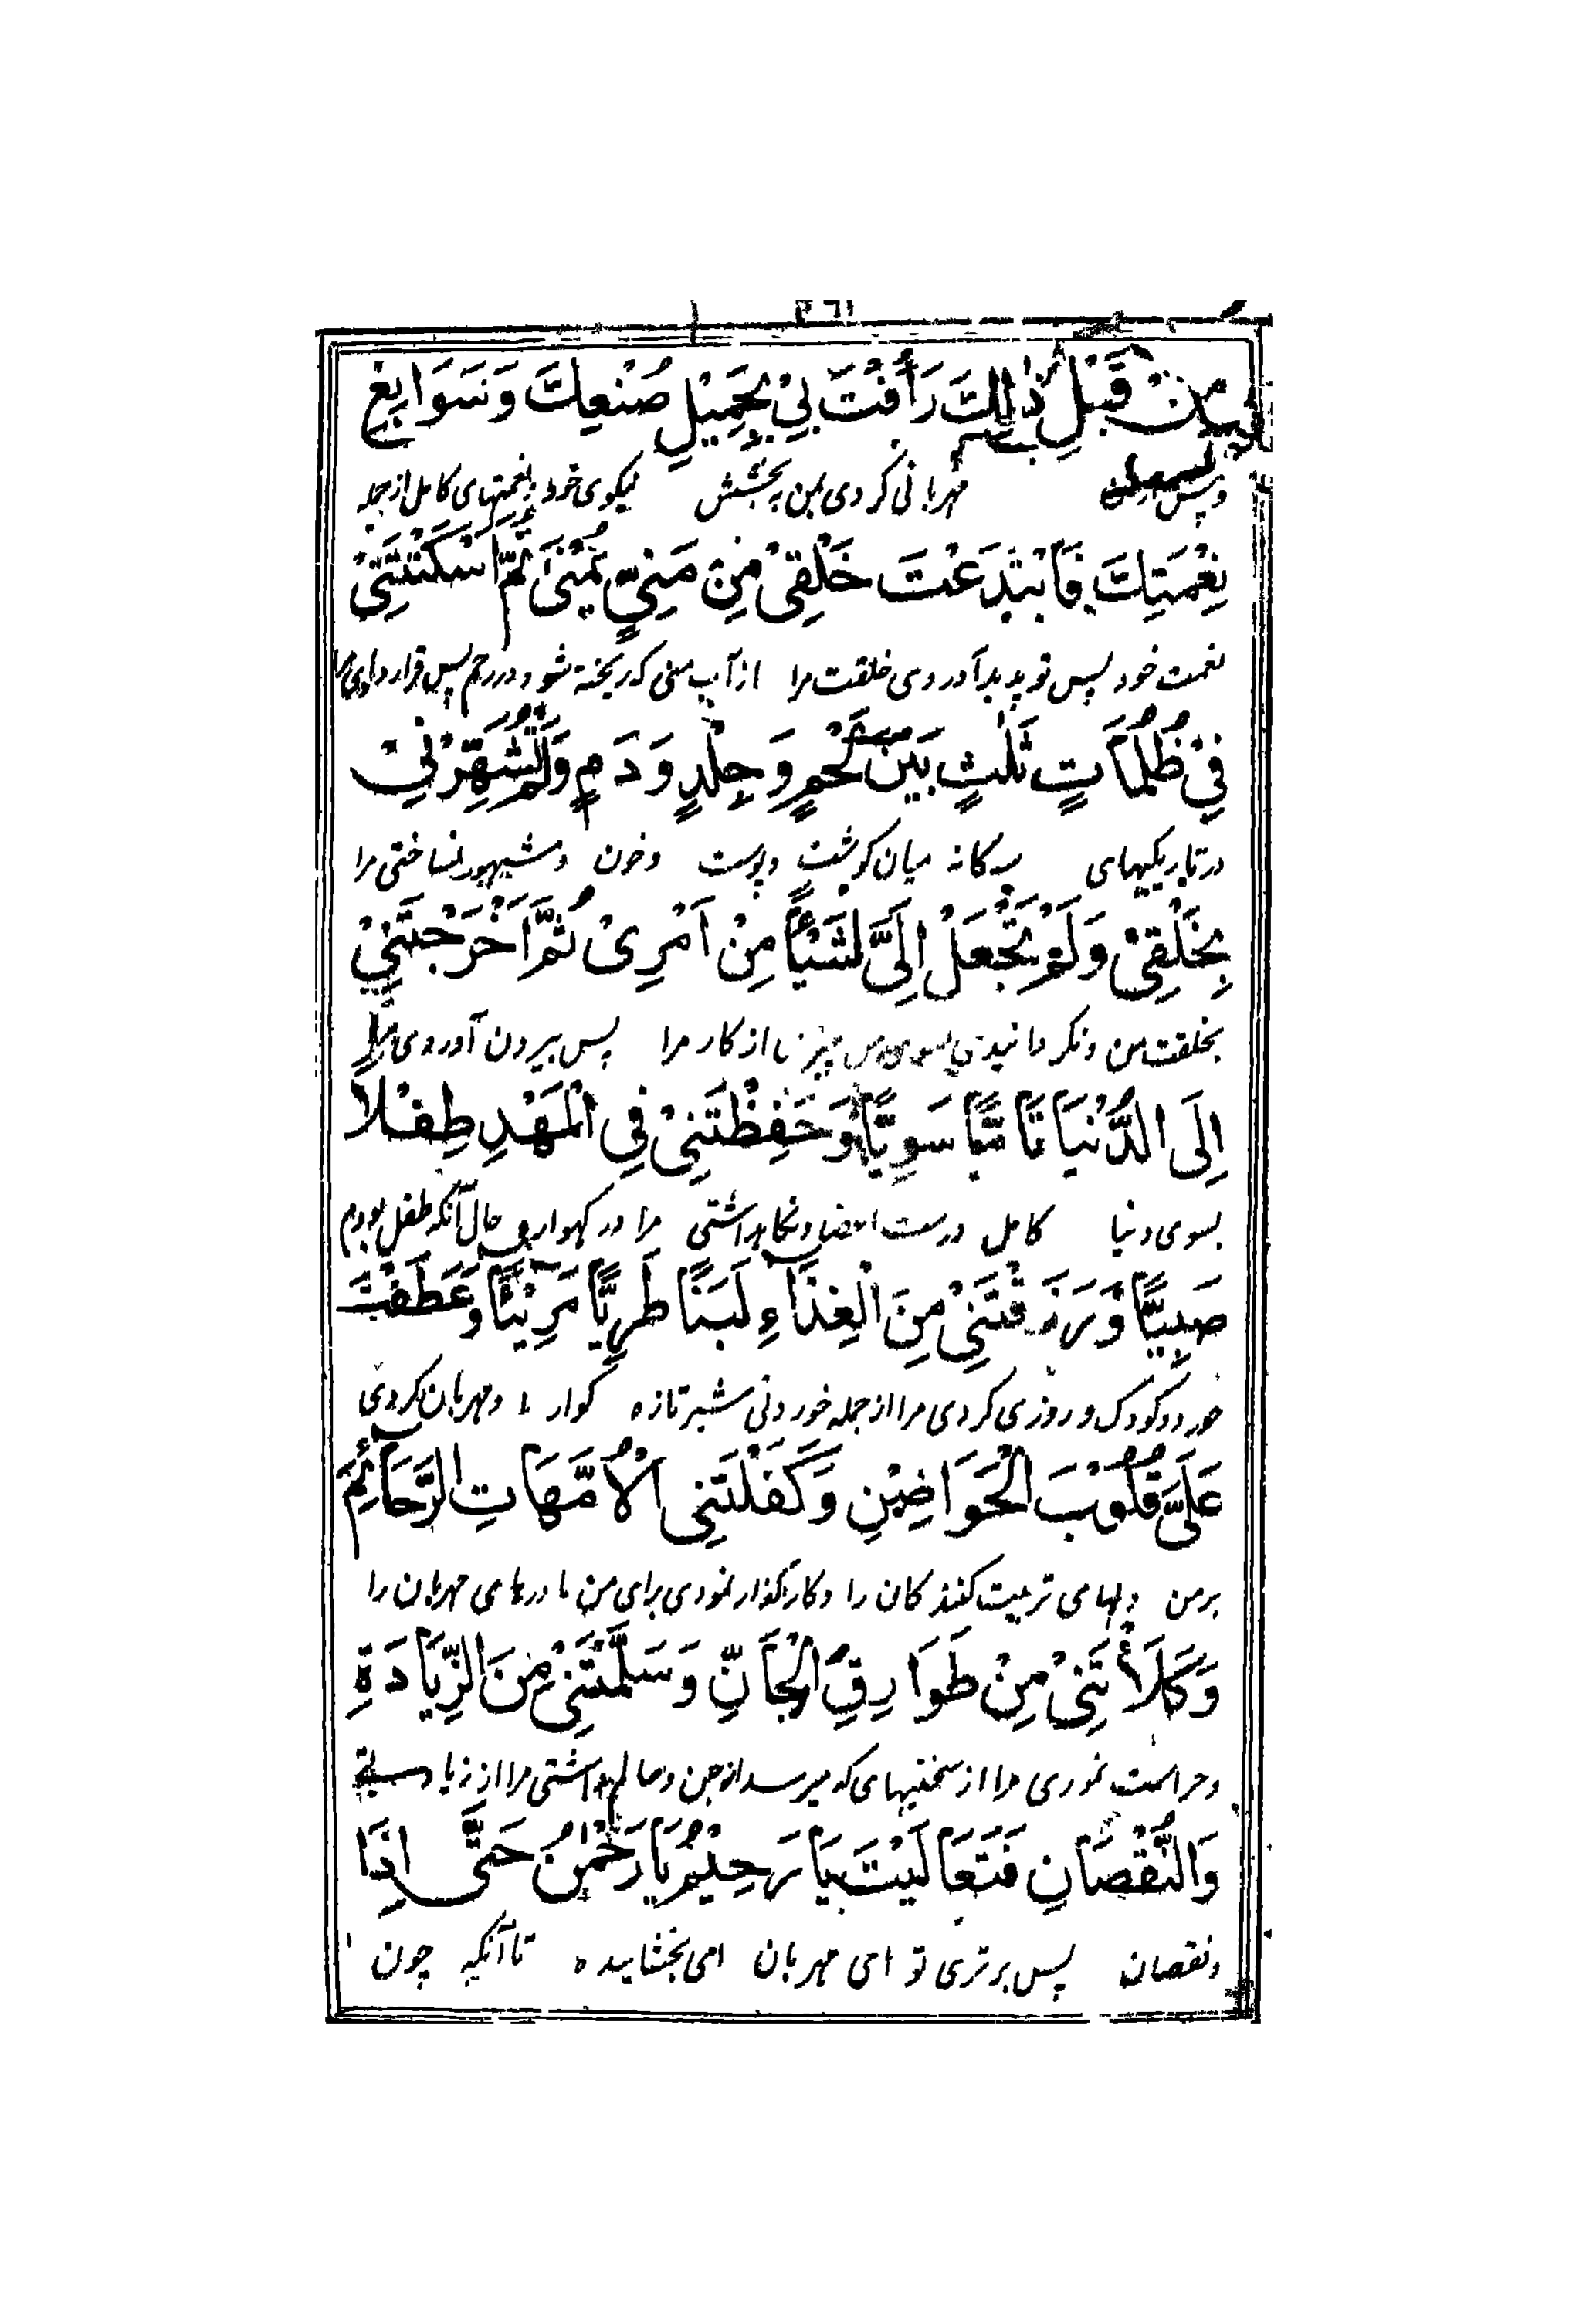 مِنْ قَبْلِ ذٰلِكَ رَأَفْتَ بِيْ بِجَمِيْلِ صُنْعِكَ وَسَوَابِغِ
مهربانی کردی بمن به بخشش نیکوی خود و نعمتهای کامل از جمله
نِعْمَتِكَ فَابْتَدَعْتَ خَلْقِيْ مِنْ مَنِيٍّ يُمْنٰى ثُمَّ اَسْكَنْتَنِيْ
نعمت خود پس تو پدید آوردی خلقت مرا از آب منی که ریخته شود در رحم پس قرار دادی مرا
فِيْ ظُلُمَاتٍ ثَلٰثٍ بَيْنَ لَحْمٍ وَجِلْدٍ وَدَمٍ وَلَمْ تُشَهِّرْنِيْ
در تاریکیهای سه کانه میان کوشت و پوست و خون و مشهور نساختی مرا
بِخَلْقِيْ وَلَمْ تَجْعَلْ اِلَيَّ شَيْئًا مِنْ اَمْرِيْ ثُمَّ اَخْرَجْتَنِيْ
بخلقت من و نکردانیدی بسوی من چیزی از کار مرا پس بیرون آوردی مرا
اِلَى الدُّنْيَا تَامًّا سَوِيًّا وَحَفِظْتَنِيْ فِي الْمَهْدِ طِفْلًا
بسوی دنیا کامل درست اعضا و نکاهداشتی مرا در کهواره و حال آنکه طفل بودم
صَبِيًّا وَرَزَقْتَنِيْ مِنَ الْغِذَاءِ لَبَنًا طَرِيًّا مَرِيْئًا وَعَطَفْتَ
خورد و کودک و روزی کردی مرا از جمله خوردنی شیر تازه کوارا و مهربان کردی
عَلَيَّ قُلُوْبَ الْحَوَاضِنِ وَكَفَلْتَنِي الْاُمَّهَاتِ الرَّحَائِمَ
بر من دلهای تربیت کنندکان را و کارکذار نمودی برای من مادرهای مهربان را
وَكَلَأْتَنِيْ مِنْ طَوَارِقِ الْجَانِّ وَسَلَّمْتَنِيْ مِنَ الزِّيَادَةِ
و حراست نمودی مرا از سختیهای که میرسد از جن و سالم داشتی مرا از زیادتی
وَالنُّقْصَانِ فَتَعَالَيْتَ يَا رَحِيْمُ يَا رَحْمٰنُ حَتّٰى اِذَا
و نقصان پس برتری تو ای مهربان ای بخشاینده تا آنکه چون